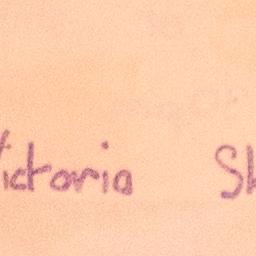 Victoria Sk